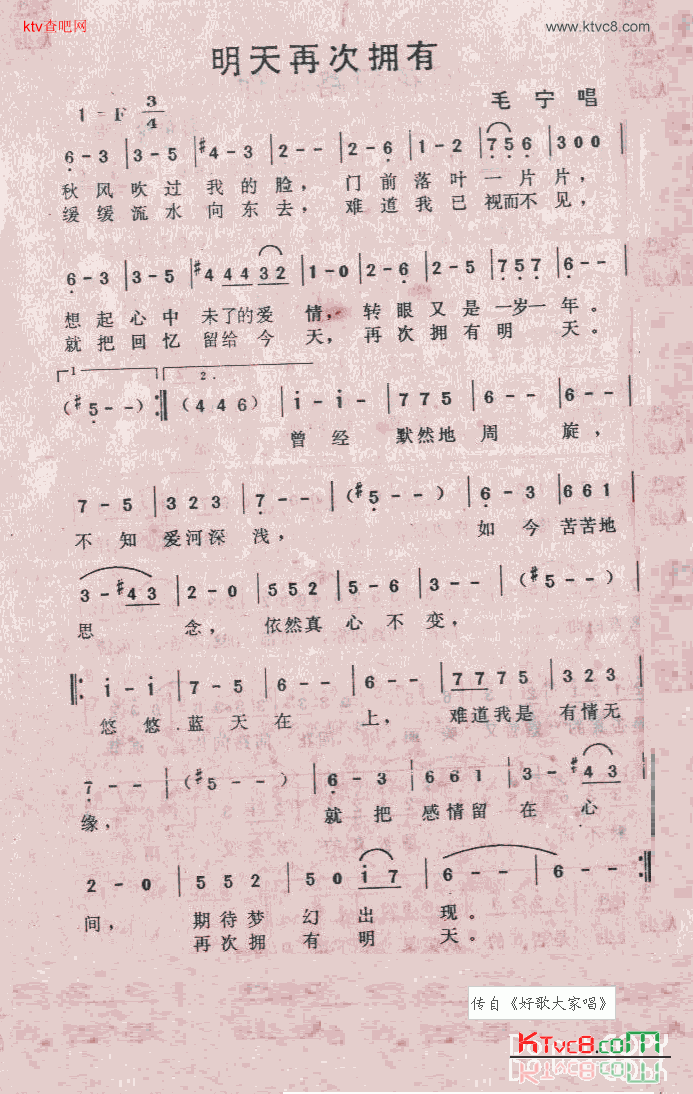 ktv查吧网
www.ktvc8.com
明天再次拥有
1=F 3/4
毛宁唱
6-3 | 3-5 | #4-3 | 2-- | 2-6 | 1-2 | 756 | 300 |
秋风吹过我的脸，门前落叶一片片，
缓缓流水向东去，难道我已视而不见，
6-3 | 3-5 | #4 44 32 | 1-0 | 2-6 | 2-5 | 757 | 6-- |
想起心中未了的爱情，转眼又是一岁一年。
就把回忆留给今天，再次拥有明天。
1 2.
(#5--) :|| (446) | i-i- | 775 | 6-- | 6-- |
曾经默然地周旋，
7-5 | 323 | 7-- | (#5--) | 6-3 | 661 |
不知爱河深浅，如今苦苦地
3-#43 | 2-0 | 552 | 5-6 | 3-- | (#5--) |
思念，依然真心不变，
||: i-i | 7-5 | 6-- | 6-- | 7775 | 323 |
悠悠蓝天在上，难道我是有情无
7-- | (#5--) | 6-3 | 661 | 3-#43 |
缘，就把感情留在心
2-0 | 552 | 50i7 | 6-- | 6-- :||
间，期待梦幻出现。
再次拥有明天。
传自《好歌大家唱》
KTvc8.com